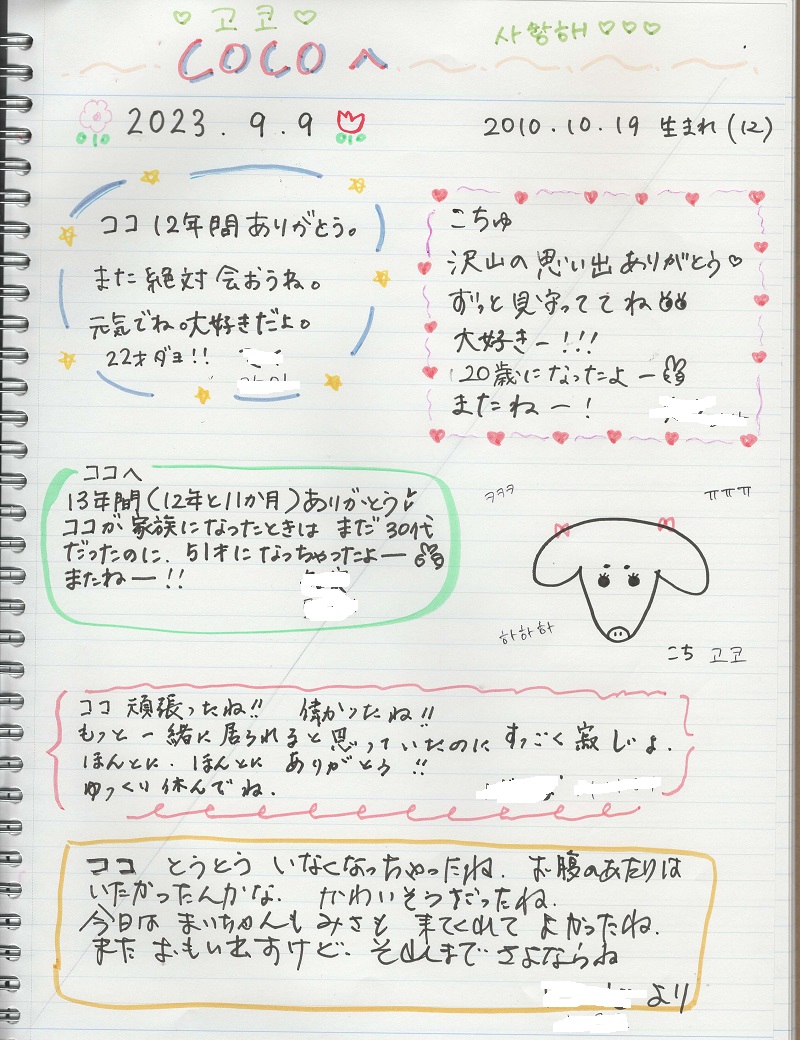 ♡ 고코 ♡
사랑해♡♡♡
COCOへ
2023.9.9
2010.10.19 生まれ(12)
ココ 12年間ありがとう。
また絶対会おうね。
元気でね。大好きだよ。
22才ダヨ!!
こちゅ
沢山の思い出ありがとう♡
ずっと見守っててね
大好きー!!!
20歳になったよー
またねー!
ココへ
13年間(12年と11か月)ありがとう♪
ココが家族になったときは まだ30代
だったのに、51才になっちゃったよー
またねー!!
ㅋㅋㅋ
ㅠㅠㅠ
하하하
こち 고코
ココ 頑張ったね!! 偉かったね!!
もっと一緒に居られると思っていたのに すっごく寂しいよ.
ほんとに、ほんとに ありがとう!!
ゆっくり休んでね.
ココ とうとう いなくなっちゃったね. お腹のあたりは
いたかったんかな. かわいそうだったね.
今日は まいちゃんも みさも 来てくれて よかったね.
また おもい出すけど、それまで さよならね
より